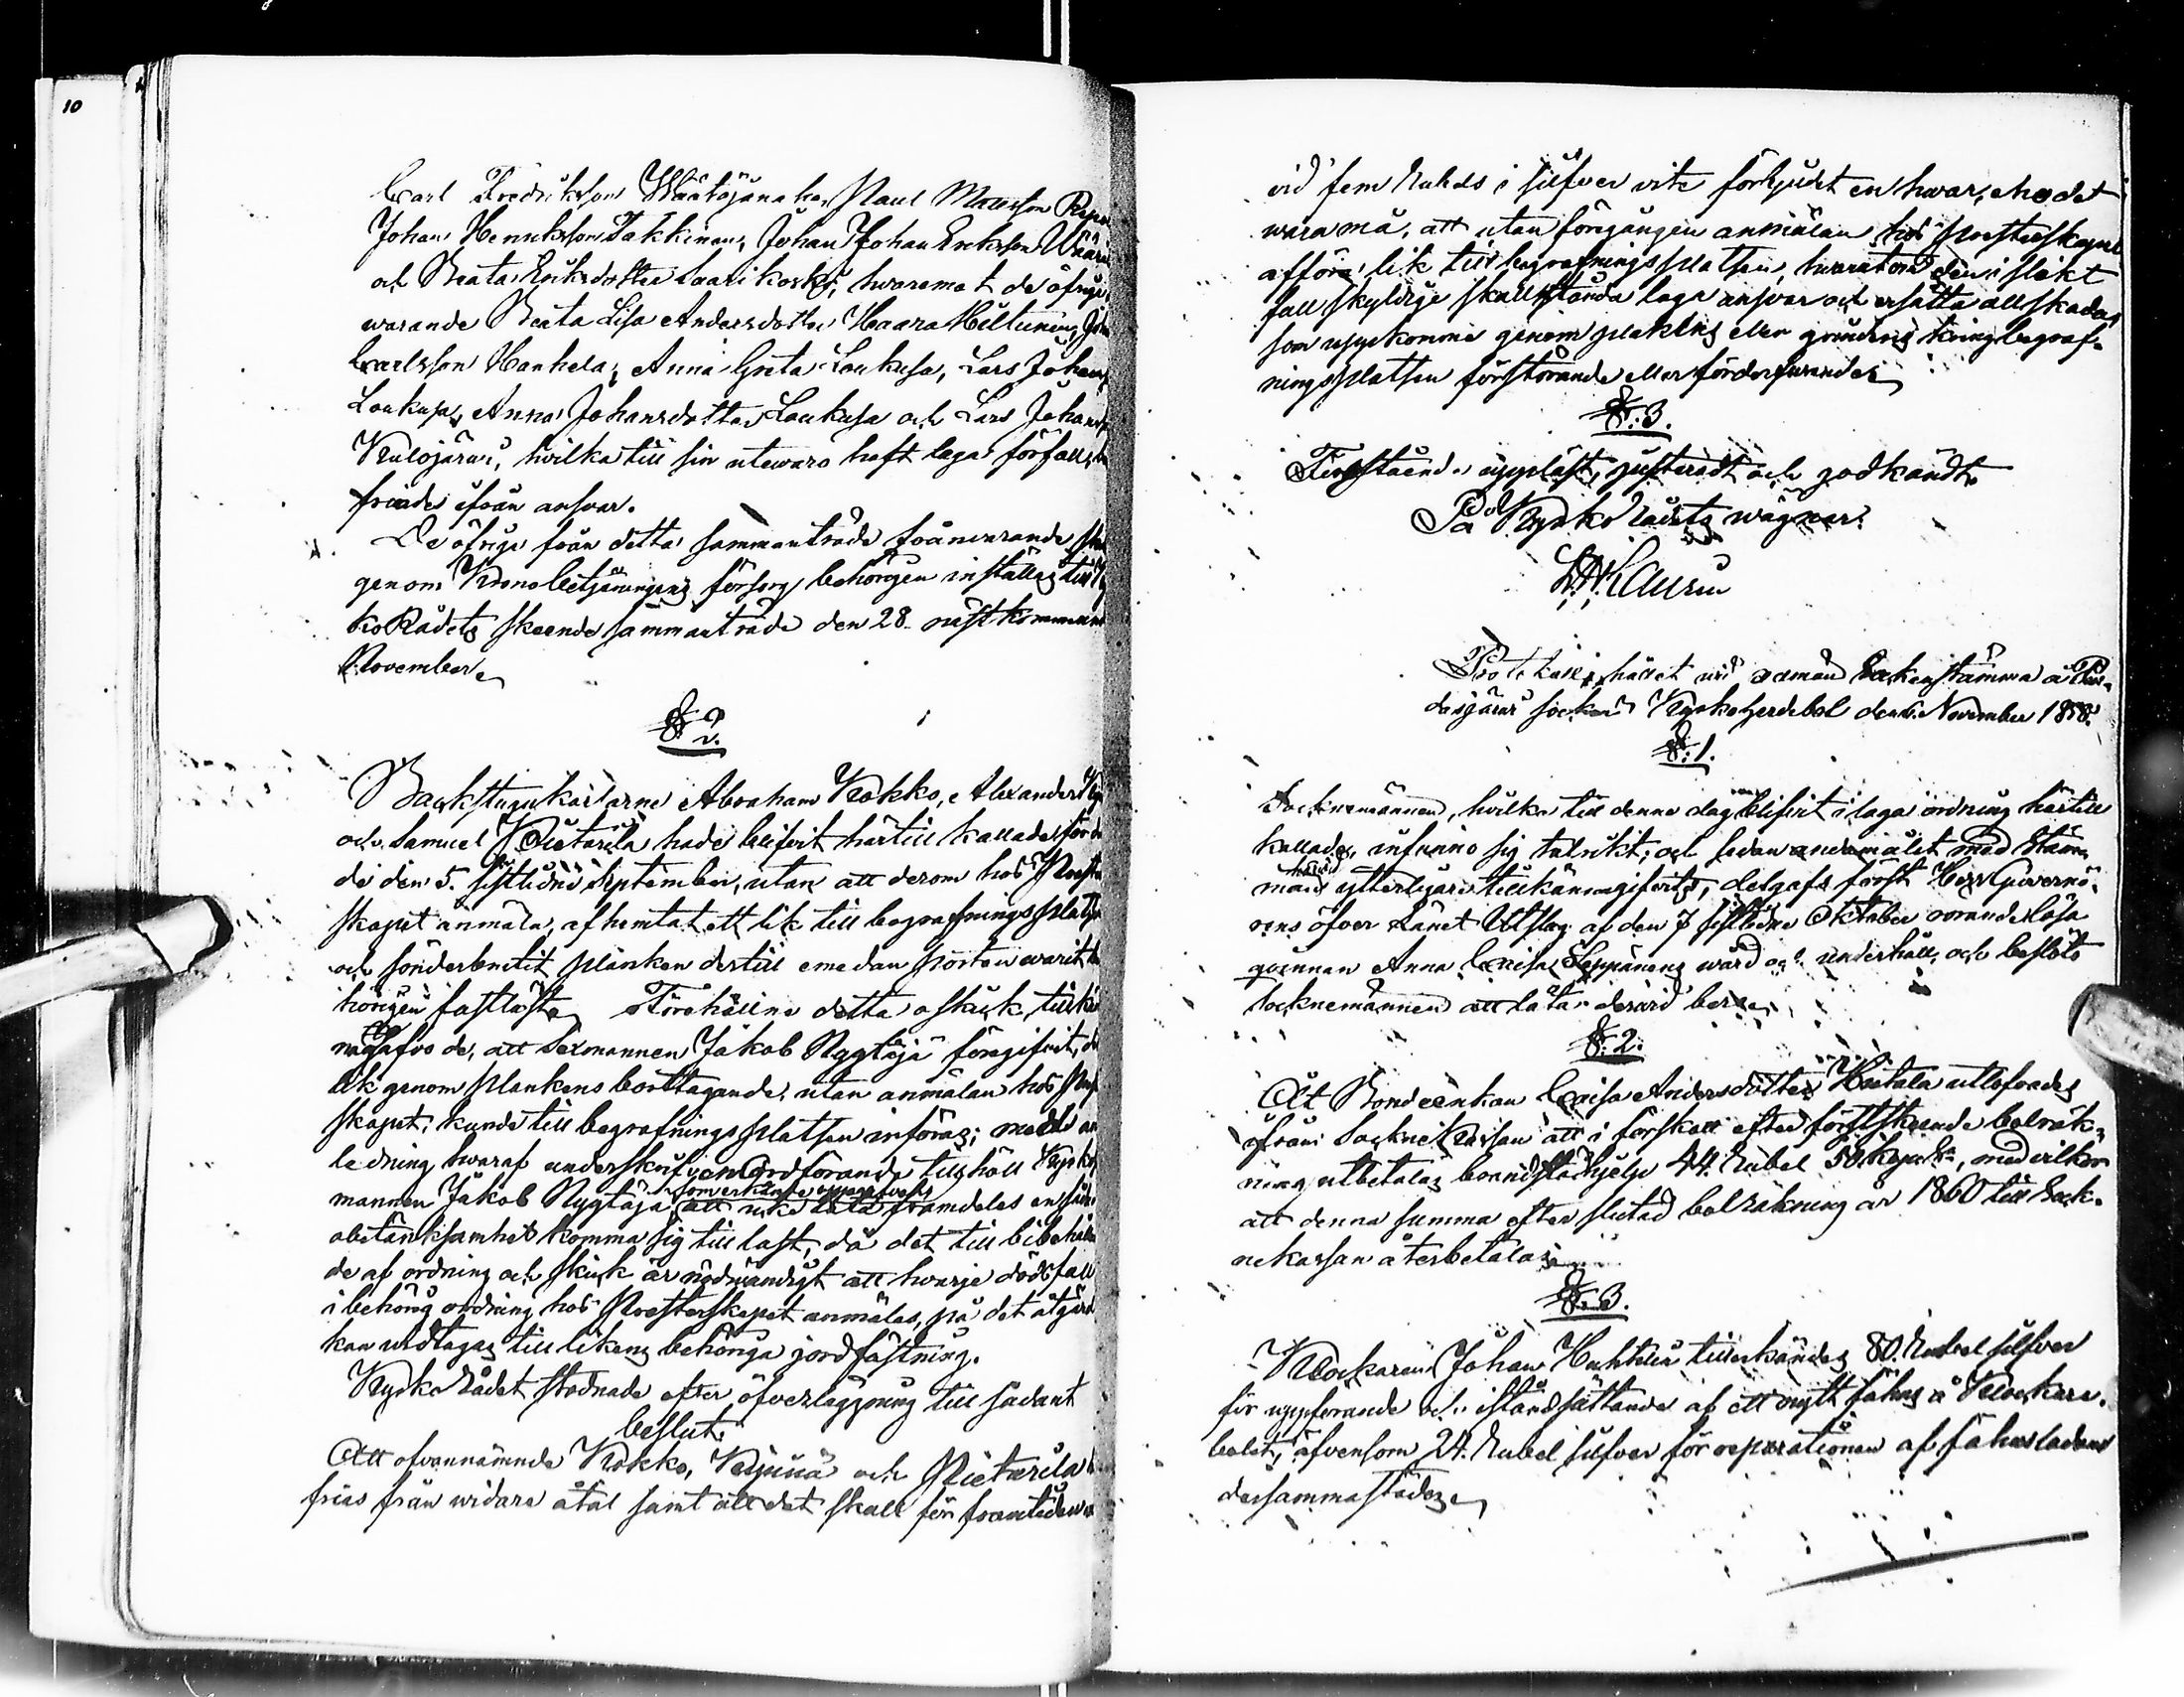 10
Carl Fredriksson Määtäjänaho, Paul Matsson
Johan Henriksson Takkinen, Johan Johan Eriksson
och Beata Eriksdotter Saarikoski, hwaremot de öfrige
warande Beata Lisa Andersdotter Haara Hiltunen,
Carlsson Hanhela, Anna Greta Loukusa, Lars Johans
Loukusa, Anna Johansdotter Loukusa och Lars Johans
Kulojärwi, hwilka till sin utewaro haft laga förfall,
friades ifrån answar.
De öfrige från detta sammanträde frånwarande
genom Kronobetjeningens försorg behörigen inställas till
koRådets skeende sammanträde den 28 nästkommande
November
§ 2.
Backstugukarlarne Abraham Kokko, Alexander
och Samuel Pietarila hade blifwit härtill kallade för
de den 5. sistledne September, utan att derom hos Prester
skapet anmäla, afhemtat ett lik till begrafningsplatsen
och sönderbrutit planken dertill emedan porten warit
hörigen fastlåst. Förehållne detta oskick tillkän
nagåfvo de, att Sexmannen Jakob Nygtäjä föregifwit, att
lik genom plankens borttagande, utan anmälan hos Prest
skapet, kunde till begrafningsplatsen införas; med
ledning hwaraf underskrifven Ordförande tillhöll Kyrko
mannen Jakob Nygtäjä, som erkände uppgifwen
att icke låta framdeles en sådan
obetänksamhet komma sig till last, då det till bibehållan
de af ordning och skick är nödwändigt att hwarje dödsfall
i behörig ordning hos Presterskapet anmäles, på det åtgärd
kan widtagas till likens behöriga jordfästning.
KyrkoRådet stadnade efter öfverläggning till sådant
beslut:
Att ofvannämnde Kokko, och Pietarila
frias från widare åtal samt att det skall för framtiden
vid fem Rubels i silfver vite förbjudet en hwar, eho det
wara må, att utan föregången anmälan hos Presterskapet
afföra lik till begrafningsplatsen, hwarutom den i slikt
fall skyldige skall stånda laga answar och ersätta all skada,
som uppkomma genom plankens eller grindens kring begraf-
ningsplatsen förstörande eller förderfwande
§: 3.
Föreståendе uppläst, justeradt och godkändt.
På KyrkoRådets wägnar:
Protokoll, hållet wid allmän Sockenstämma i Pu-
dasjärwi socken Kyrkoherdebol den 6. November 1858.
§: 1.
Socknemännen, hwilka till denna dag blifvit i laga ordning härtill
kallade, infunno sig talrikt; och sedan ändamålet med Stäm-
man ytterligare tillkännagifvits, delgafs först Herr Guvernö-
rens öfver Länet Utslag af den 7 sistledne Oktober rörande lösa
qvinnan Anna Caisa Seppänens wård och underhåll, och beslöto
Socknemännen att låta derwid bero.
§: 2.
Åt Bondeenkan Caisa Andersdotter Hietala utlofvades
ifrån SockneKassan att i förskott efter först skeende bolräk-
ning utbetalas brandstodshjelp 44. Rubel 50 kop. Sr., med vilkor
att denna summa efter slutad bolräkning år 1860 till Sock-
nekassan återbetalas
§: 3.
Klockaren Johan Huhtela tillerkändes 80. Rubel silfver
för uppförande och iståndsättande af ett nytt fähus å Klockare-
bolet, äfvensom 24. Rubel silfver för reparationen af fähusladan
dersammastädes